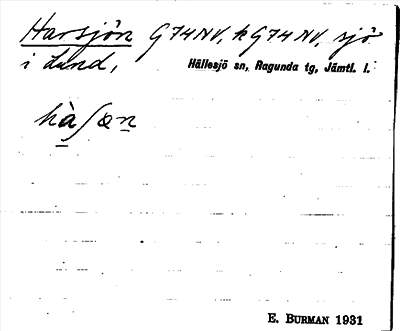 Harsjön G74NV, k G74NV, sjö
i Lund, Hällesjö sn, Ragunda tg, Jämtl. l.
hàʃæn
E. BURMAN 1931